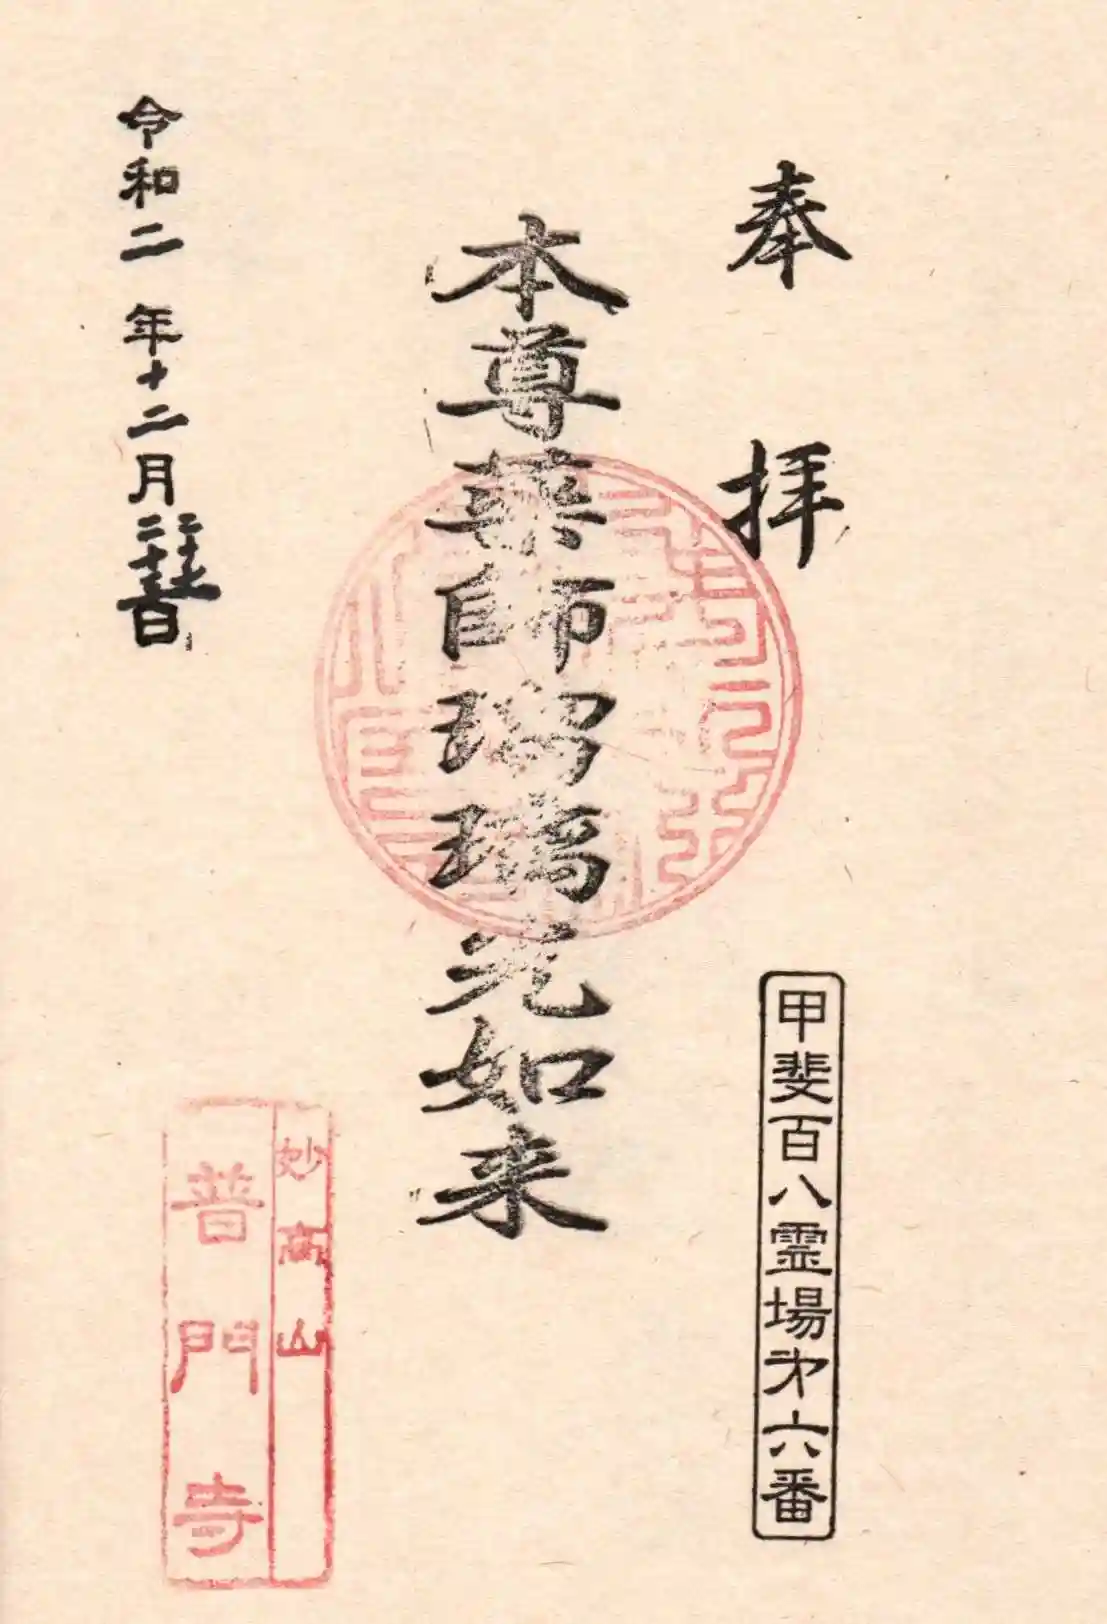 奉拝
甲斐百八霊場才六番
本尊薬師瑠璃光如来
令和二年十二月
日
妙高山
普門寺